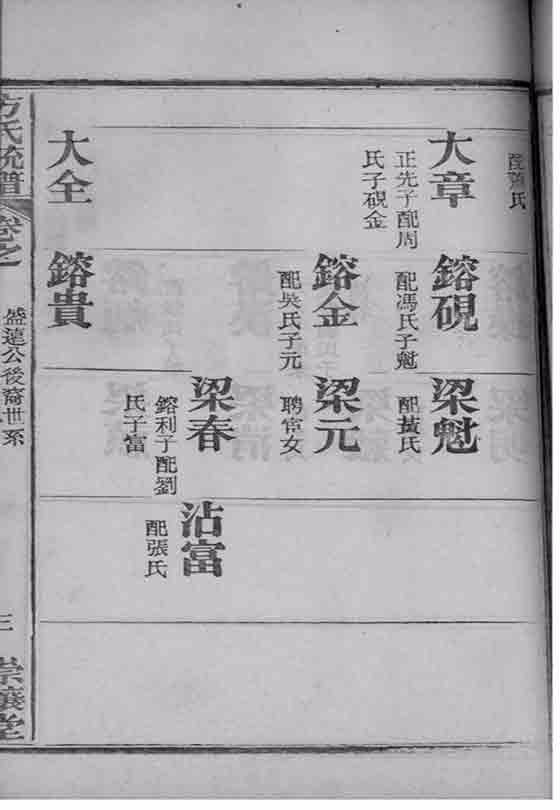 配蕭氏
大章
正先子配周
氏子硯金
大全
鎔硯
配馮氏子魁
鎔金
配吳氏子元
鎔貴
梁魁
配黃氏
梁元
聘宦女
梁春
鎔利子配劉
氏子富
沾富
配張氏
方氏統譜
卷之
盛達公後裔世系
三